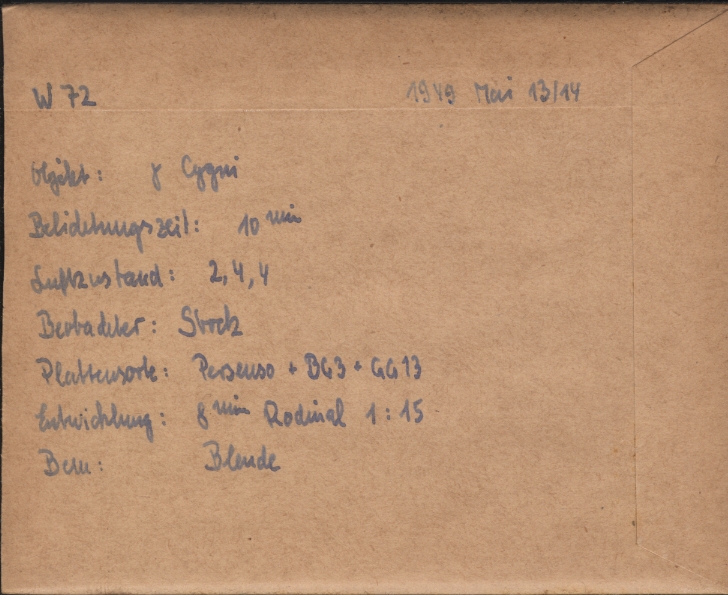 W 72 1949 Mai 13/14
Objekt: γ Cygni
Belichtungszeit: 10 min
Luftzustand: 2, 4, 4
Beobachter: Strotz
Plattensorte: Persenso + BG3 + GG13
Entwicklung: 8 min Rodinal 1:15
Bem: Blende